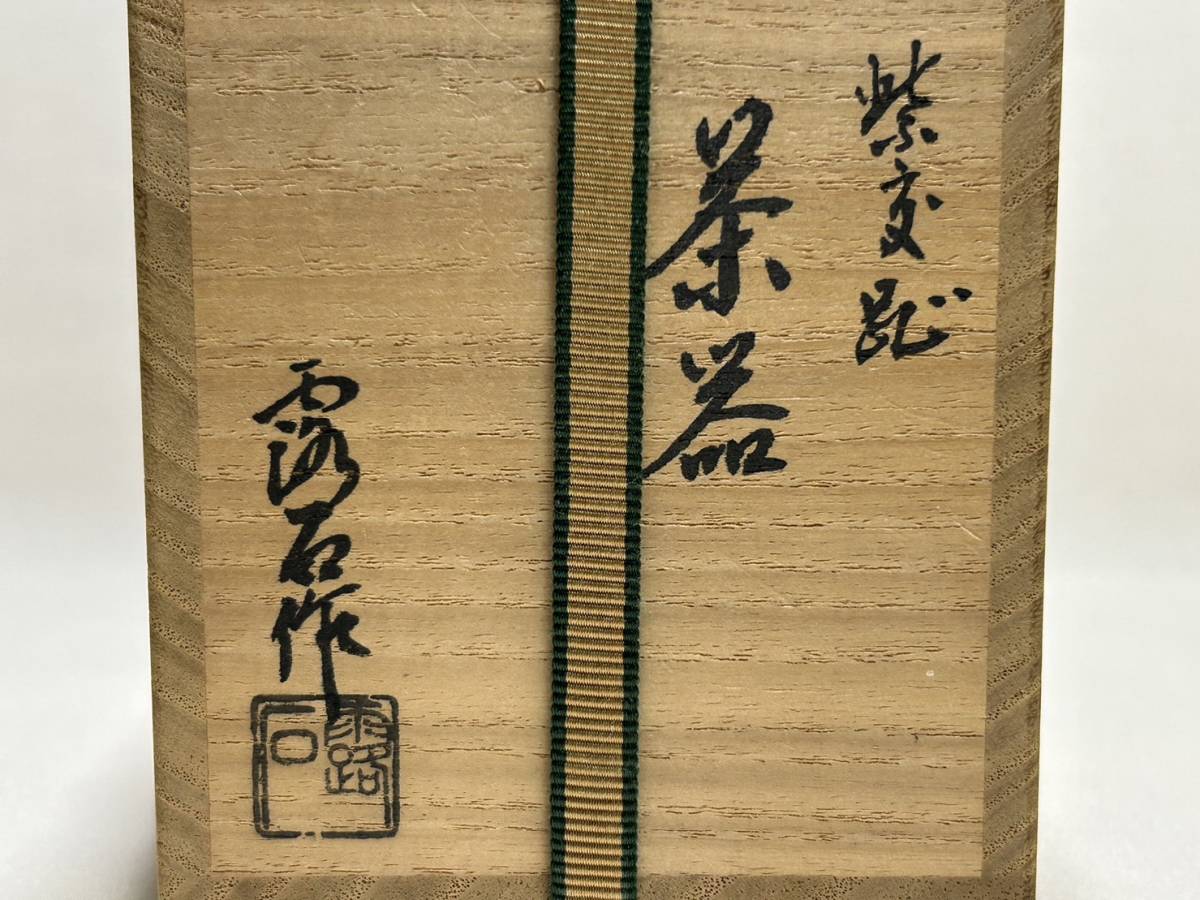 紫交趾
茶器
露石作
露石